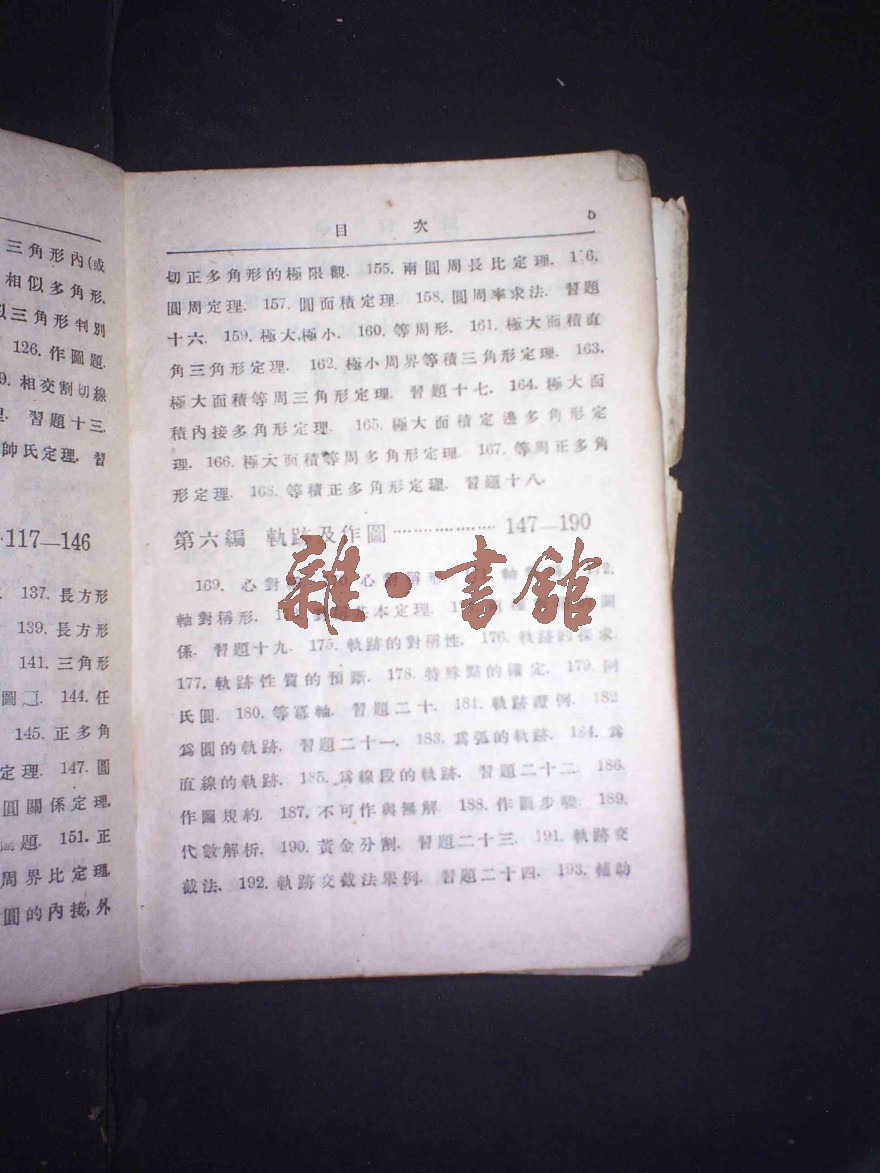 三角形內(或
相似多角形.
似三角形判別
126. 作圖題.
9. 相交割切線
理. 習題十三.
帥氏定理. 習
117—146
137. 長方形
139. 長方形
141. 三角形
144. 任
145. 正多角
定理. 147. 圓
圓關係定理.
題. 151. 正
周界比定理.
圓的內接,外
目 次 5
切正多角形的極限觀. 155. 兩圓周長比定理. 156.
圓周定理. 157. 圓面積定理. 158. 圓周率求法. 習題
十六. 159. 極大,極小. 160. 等周形. 161. 極大面積直
角三角形定理. 162. 極小周界等積三角形定理. 163.
極大面積等周三角形定理. 習題十七. 164. 極大面
積內接多角形定理. 165. 極大面積定邊多角形定
理. 166. 極大面積等周多角形定理. 167. 等周正多角
形定理. 168. 等積正多角形定理. 習題十八.
第六編 軌跡及作圖 ……………… 147—190
169. 心對 心對稱形. 軸對 172.
軸對稱形. 基本定理. 圖
係. 習題十九. 175. 軌跡的對稱性. 176. 軌跡的探求.
177. 軌跡性質的預斷. 178. 特殊點的確定. 179. 阿
氏圓. 180. 等冪軸. 習題二十. 181. 軌跡證例. 182
爲圓的軌跡. 習題二十一. 183. 爲弧的軌跡. 184. 爲
直線的軌跡. 185. 爲線段的軌跡. 習題二十二. 186.
作圖規約. 187. 不可作與無解. 188. 作圖步驟. 189.
代數解析. 190. 黃金分割. 習題二十三. 191. 軌跡交
截法. 192. 軌跡交截法舉例. 習題二十四. 193. 輔助
雜·書館